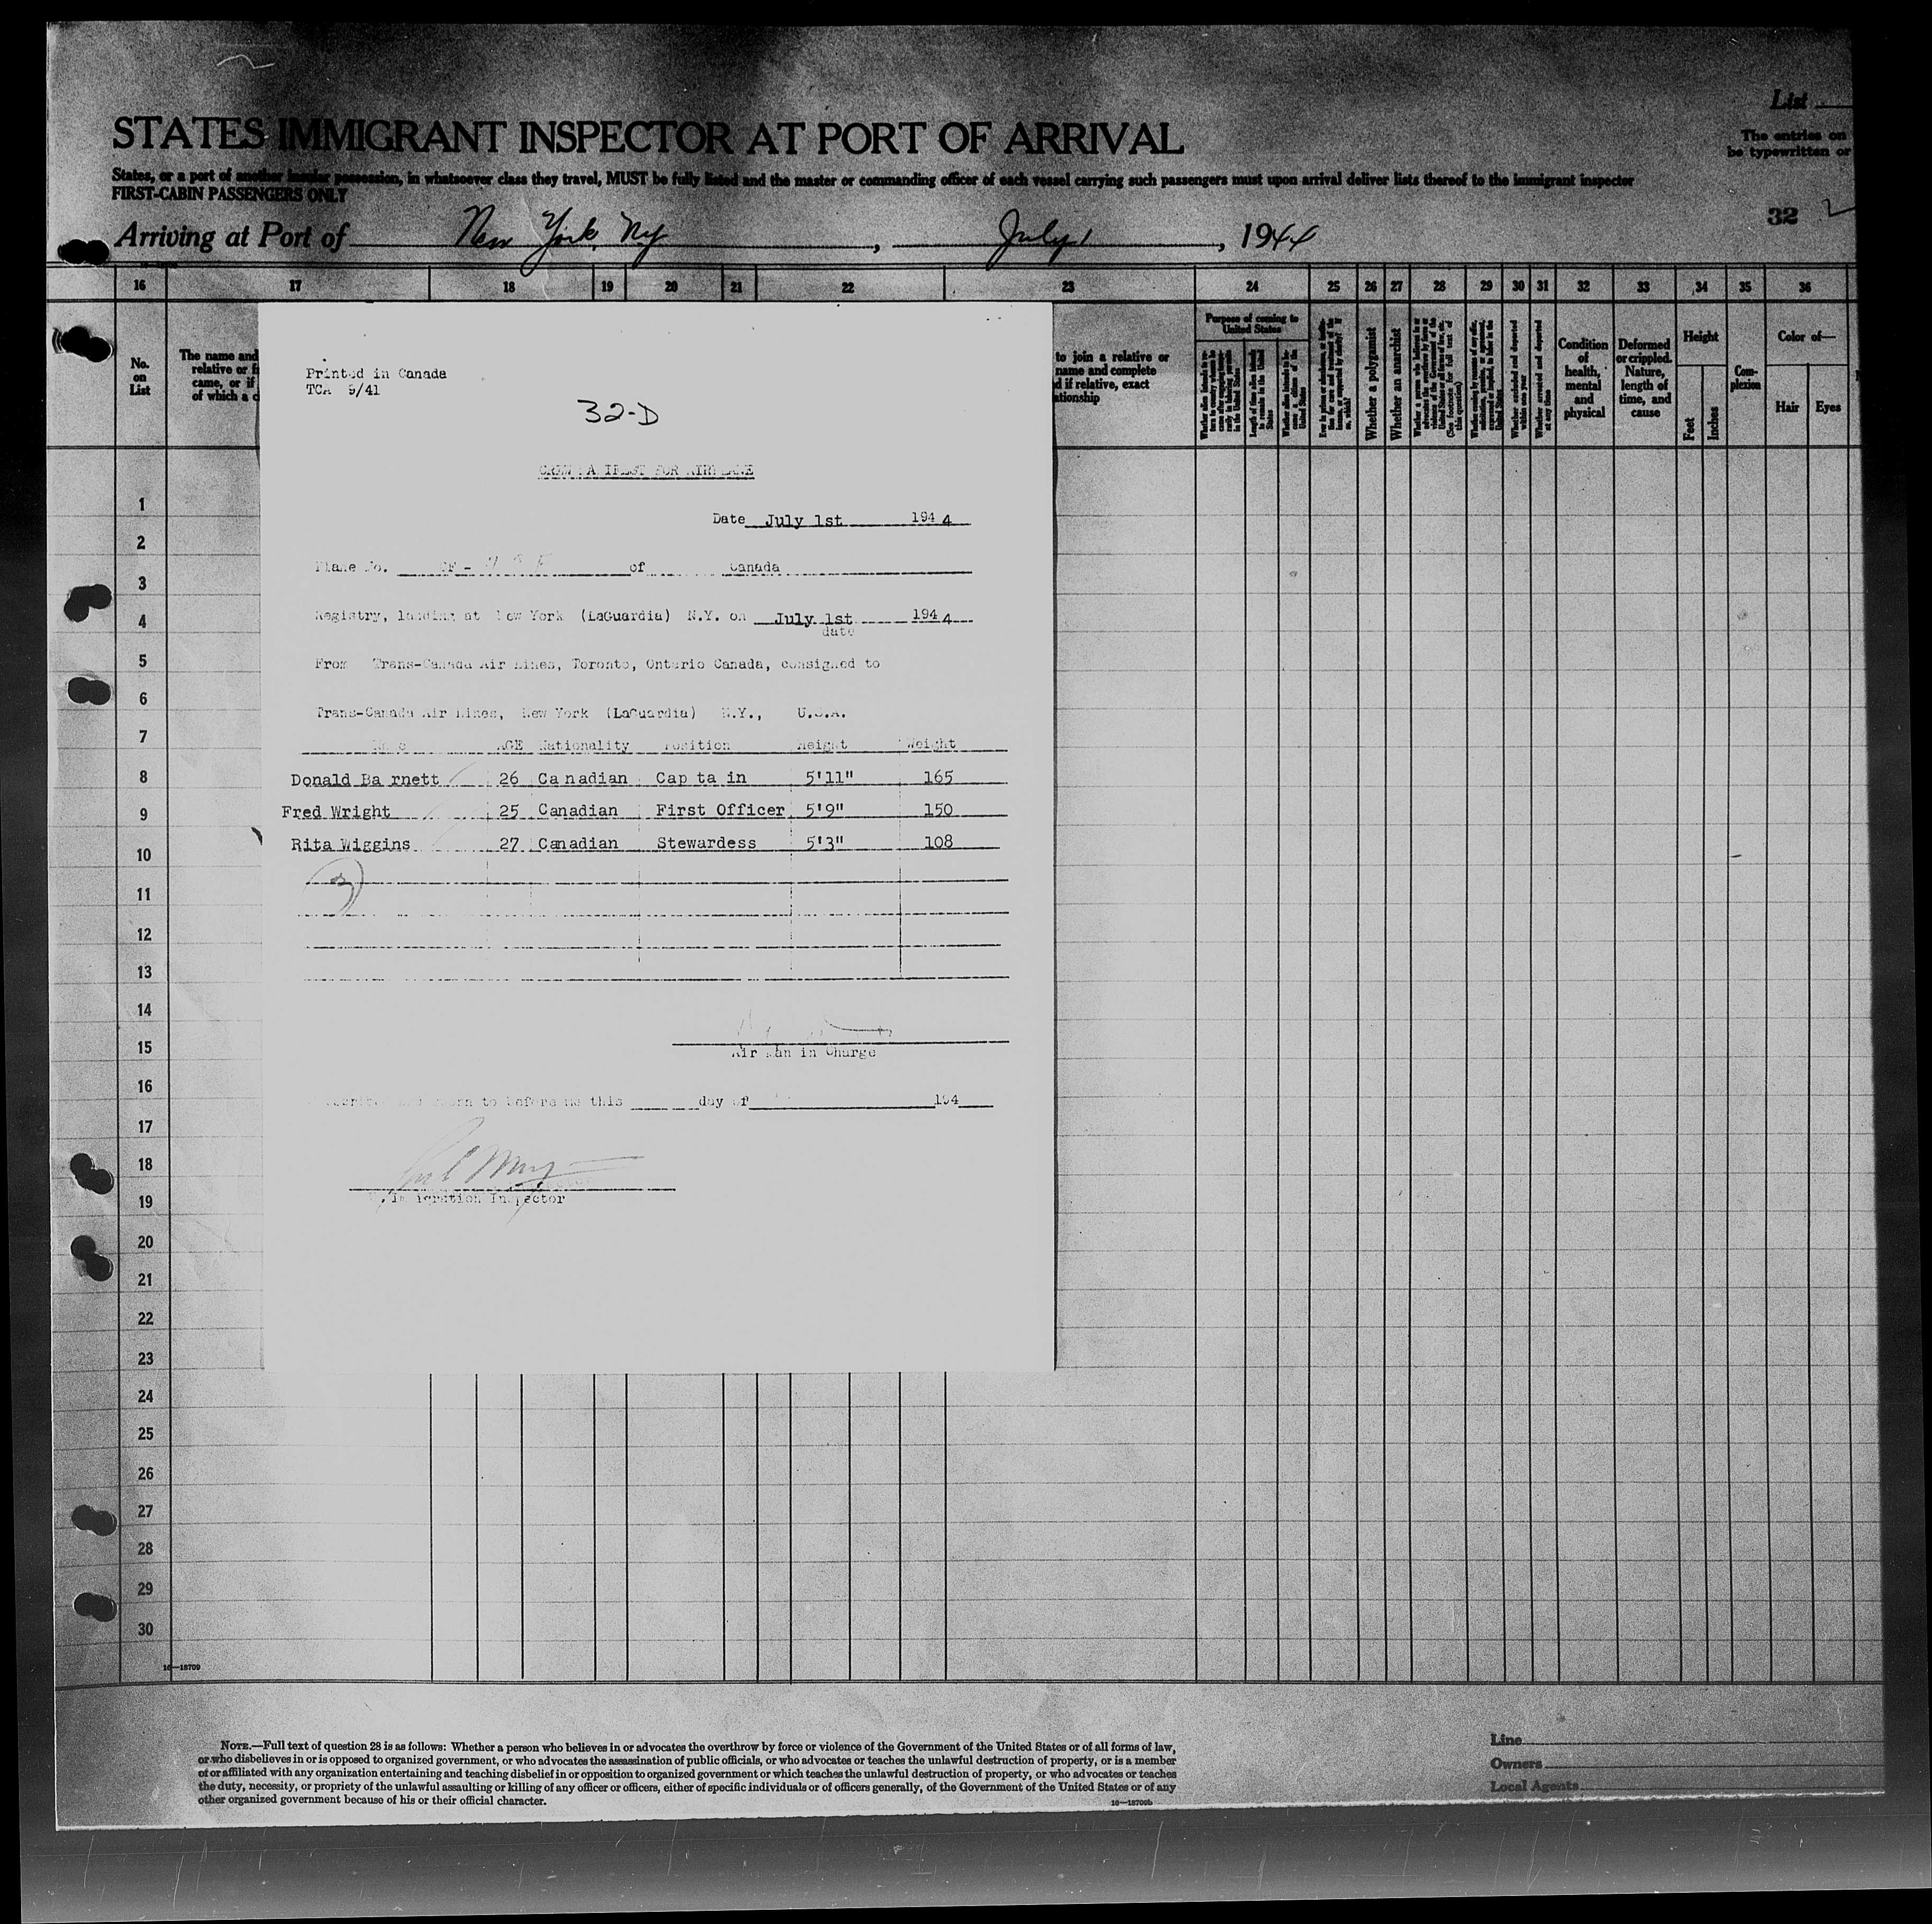 List
STATES IMMIGRANT INSPECTOR AT PORT OF ARRIVAL
The entries on
be typewritten or
States, or a port of another insular possession, in whatsoever class they travel, MUST be fully listed and the master or commanding officer of each vessel carrying such passengers must upon arrival deliver lists thereof to the immigrant inspector
FIRST-CABIN PASSENGERS ONLY
32
Arriving at Port of New York, NY, July 1, 1944
16 17 18 19 20 21 22 23 24 25 26 27 28 29 30 31 32 33 34 35 36
No. on List
The name and
relative or
came, or if
of which a
to join a relative or
name and complete
if relative, exact
Purpose of coming to United States
Whether a polygamist
Whether an anarchist
Whether excluded and deported within one year
Whether arrested and deported at any time
Condition of health, mental and physical
Deformed or crippled. Nature, length of time, and cause
Height
Feet
Inches
Com-plexion
Color of—
Hair
Eyes
Printed in Canada
TCA 9/41
32-D
CREW MANIFEST FOR AIRPLANE
Date July 1st 1944
Plane No. CF- of Canada
Registry, landing at New York (LaGuardia) N.Y. on July 1st 1944
date
From Trans-Canada Air Lines, Toronto, Ontario Canada, consigned to
Trans-Canada Air Lines, New York (LaGuardia) N.Y., U.S.A.
Name AGE Nationality Position Height Weight
Donald Barnett 26 Canadian Captain 5'11" 165
Fred Wright 25 Canadian First Officer 5'9" 150
Rita Wiggins 27 Canadian Stewardess 5'3" 108
3
Air Man in Charge
Subscribed and sworn to before me this day of 194
Immigration Inspector
1
2
3
4
5
6
7
8
9
10
11
12
13
14
15
16
17
18
19
20
21
22
23
24
25
26
27
28
29
30
16—18709
NOTE.—Full text of question 28 is as follows: Whether a person who believes in or advocates the overthrow by force or violence of the Government of the United States or of all forms of law,
or who disbelieves in or is opposed to organized government, or who advocates the assassination of public officials, or who advocates or teaches the unlawful destruction of property, or is a member
of or affiliated with any organization entertaining and teaching disbelief in or opposition to organized government or which teaches the unlawful destruction of property, or who advocates or teaches
the duty, necessity, or propriety of the unlawful assaulting or killing of any officer or officers, either of specific individuals or of officers generally, of the Government of the United States or of any
other organized government because of his or their official character.
16—18709b
Line
Owners
Local Agents